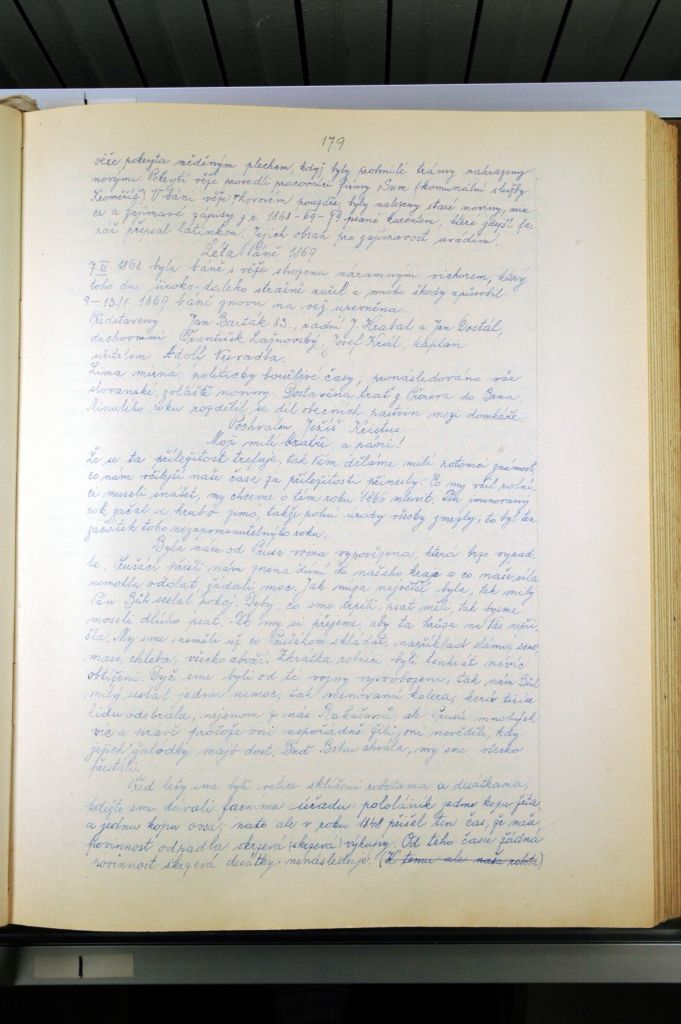 179
věže pokryta měděným plechem, když byly prohnilé trámy nahrazeny
novými. Pokrytí věže provedli pracovníci firmy Bum (komunální služby
Kroměříž). V báni věže v kovovém pouzdře, byly nalezeny staré noviny, min-
ce a zajímavé zápisy z r. 1868-69-79 psané kurentem, které zdejší fa-
rář přepsal latinkou. Jejich obsah pro zajímavost uvádím.
Léta Páně 1869
7.XII 1868 byla báně s věže shozena náramným vichorem, který
toho dne široko-daleko strašně zuřil a mnoho škody způsobil.
9-13.11. 1869 báně znovu na věž upevněna.
Představený Jan Barták 83., radní J. Hrabal a Jan Dostál,
duchovními František Lažnovský, Josef Král, kaplan
učitelem Adolf Nevradba.
Zima mírná, politicky bouřlivé časy, pronásledováno vše
slovanské, zvláště noviny. Dostavěna trať z Přerova do Brna.
Minulého roku rozdělil se díl obecních pastvin mezi domkaře.
Pochválen Ježíš Kristus.
Moji milí bratři a páni!
Že se ta příležitost trefuje, tak Vám děláme milí potomci známost,
co nám včilejší naše čase za příležitosti přinesly. Co my včil rolní-
ci museli snášet, my chceme o tém roku 1866 mluvit. Ten jmenovaný
rok začal se hrubó zimó, takže polní úrody všecky zmrzly, to byl ten
začátek toho nezapomenutelnýho roku.
Byla nám od Pruse vojna vypovězena, která brzo vypad-
la. Prušáci přišli nám znenadání do našeho kraje a co naše síla
nemohla odolat žádali moc. Jak núza největší byla, tak milý
Pán Bůh seslal pokoj. Dyby, co sme trpěli, psat měli, tak bysme
moseli dlúho psat. Též my si přejeme, aby ta núza na Vás nepři-
šla. My sme neměli už co Prušákom skládat, například slámu, seno,
maso, chleba, všecko zboží. Zkrátka rolníci byli tenkrát nevíc
obtíženi. Dyž sme byli od té vojny vysvobozeni, tak nám Bůh
milý seslal jednu nemoc, tak menovaní kolera, kerá tisíce
lidu odebrala, nejenom z nás Rakušanů, ale Prusů mnohýsk
víc a právě protože oni nespořádně žili, oni nevěděli, kdy
jejich žalodky majó dost. Buď Bohu chvála, my sme všecko
přestáli.
Před lety sme byli velice sklíčeni robotama a desátkama,
kdežto sme dávali farnímu úřadu: pololáník jednu kopu žita
a jednu kopu ovsa, nato ale v roku 1848 přišél ten čas, že naše
povinnost odpadla skrzevá (skrzevá) výkupy. Od teho času žádná
povinnost skrzevá desátky nenásleduje. (K temu ale naša robota)